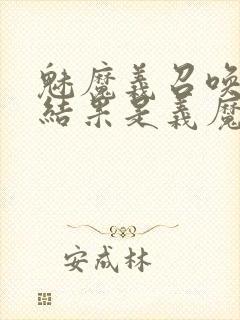 魅魔義召喚
結果是義魔
安成林